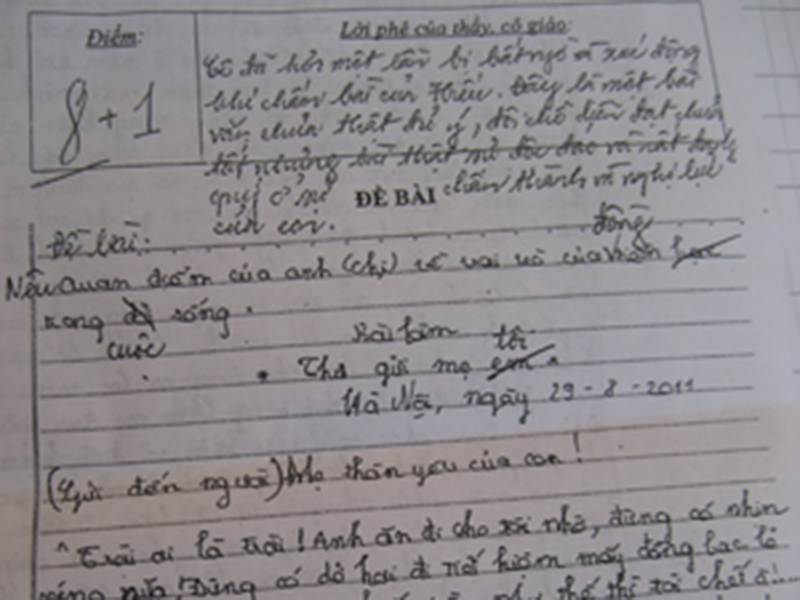 Điểm:
8 + 1
Lời phê của thầy, cô giáo:
Cô đã hơn một lần bị bất ngờ và xúc động
khi chấm bài của Hiếu. Đây là một bài
văn chưa thật đủ ý, đôi chỗ diễn đạt chưa
tốt nhưng bài thật sự độc đáo và rất đáng
quý ở sự chân thành và nghị lực
của con.
ĐỀ BÀI
Đề bài:
Nêu quan điểm của anh (chị) về vai trò của đồng
trong cuộc sống.
Bài làm
Thơ gửi mẹ tôi
Hà Nội, ngày 29-8-2011
(Gửi đến người) Mẹ thân yêu của con!
"Trời ơi là trời! Anh ăn đi cho tôi nhờ, đừng có nhìn
nữa! Đừng có dở hơi đi tiết kiệm mấy đồng bạc lẻ
thế thì tôi chết